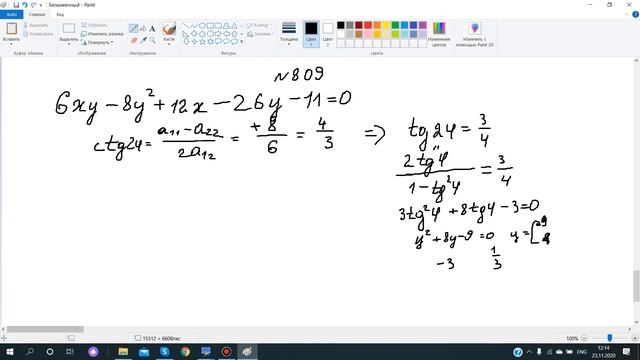 Безымянный - Paint
Файл Главная Вид
Вставить Вырезать Копировать Выделить Обрезать Изменить размер Повернуть Кисти Контур Заливка Толщина Цвет 1 Цвет 2 Изменение цветов Изменить с помощью Paint 3D
Буфер обмена Изображение Инструменты Фигуры Цвета
№809
6xy - 8y² + 12x - 26y - 11 = 0
ctg2φ = (a₁₁ - a₂₂)/(2a₁₂) = +8/6 = 4/3 => tg2φ = 3/4
2tgφ/(1 - tg²φ) = 3/4
3tg²φ + 8tgφ - 3 = 0
y² + 8y - 9 = 0 y = [
-3 1/3
15312 × 6608пкс 100%
12:14
ENG
23.11.2020